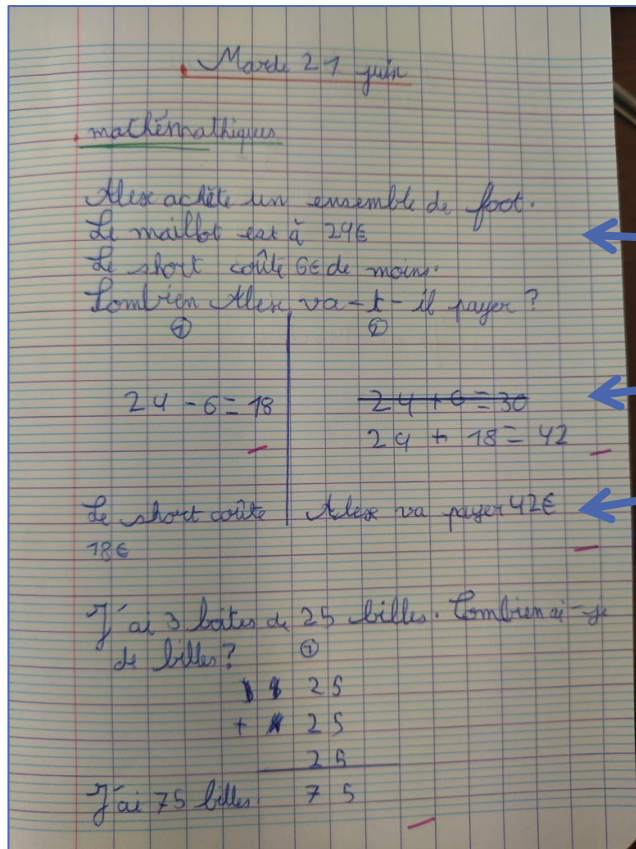 Marde 21 juin
mathémathiques
Alex achète un ensemble de foot.
Le maillot est à 24€
Le short coûte 6€ de moins.
Combien Alex va-t-il payer ?
① ②
24 - 6 = 18 24 + 6 = 30
24 + 18 = 42
Le short coûte Alex va payer 42€
18€
J'ai 3 boites de 25 billes. Combien ai-je
de billes ? ①
25
+ 25
25
J'ai 75 billes. 75